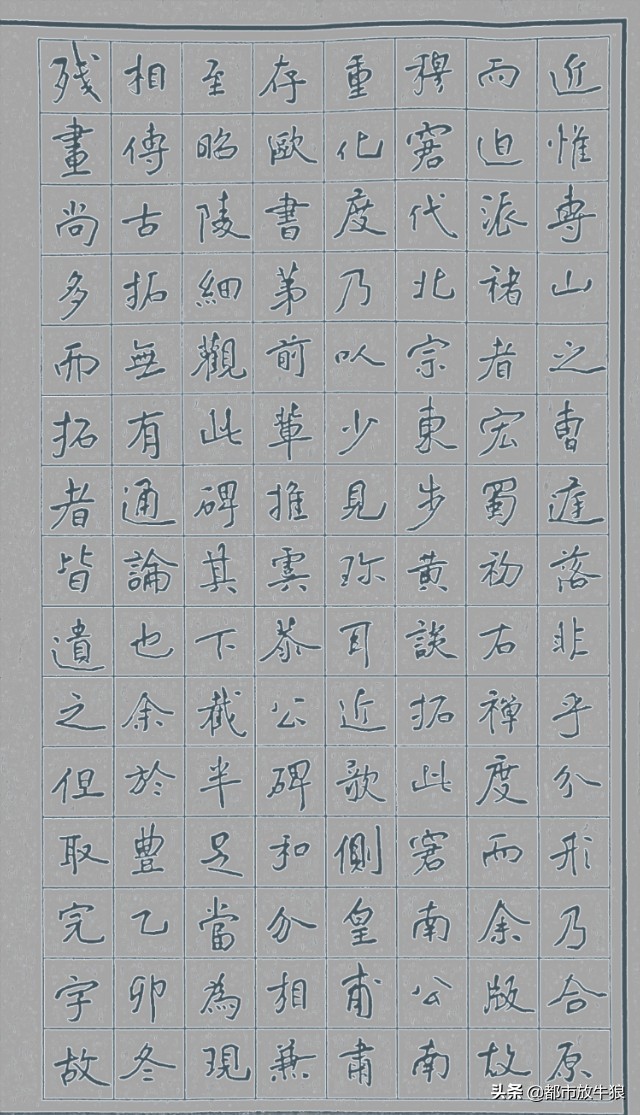 近惟專山之曹落非乎分形乃合原
而迫派褚者宏蜀初右禅度而余版故
穆代北宗東步黄談拓此南公南
重化度乃以少見珎耳近歌側皇甫肅
存歐書第前輩推虞恭公碑和分相兼
至昭陵細觀此碑其下截半足當為現
相傳古拓無有通論也余於豊乙卯冬
残畫尚多而拓者皆遺之但取完字故
头条 @都市放牛狼